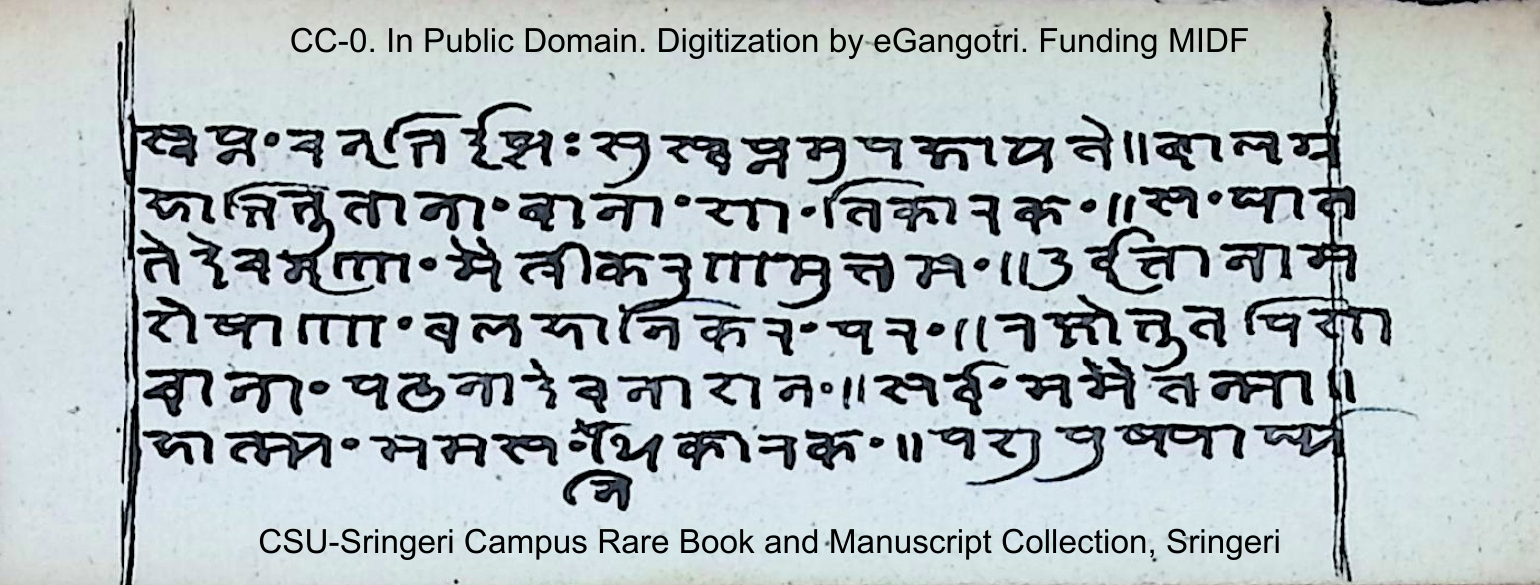 CC-0. In Public Domain. Digitization by eGangotri. Funding MIDF
स्वप्नं च नृभिर्दृष्टः सुस्वप्नमुपजायते॥ बालग्र
हाभिभूतानां बालानां शांतिकारकं॥ संघात
भेदे च नृणां मैत्रीकरणमुत्तमं॥ दुर्वृत्तानाम
शेषाणां बलहानिकरं परं॥ रक्षोभूतपिशा
चानां पठनादेव नाशनं॥ सर्वं ममैतन्मा॥
हात्म्यं मम सं थिकारकं॥ पशुपुष्पार्घ्य
नि
CSU-Sringeri Campus Rare Book and Manuscript Collection, Sringeri